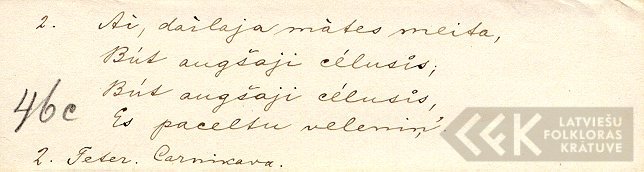 2. Ai, dailaja mātes meita,
Būt augšaji cēlusēs;
Būt augšaji cēlusēs,
46c
Es paceltu veleniņ'.
2. Peter. Carnikava.
LFK
LATVIEŠU
FOLKLORAS
KRĀTUVE